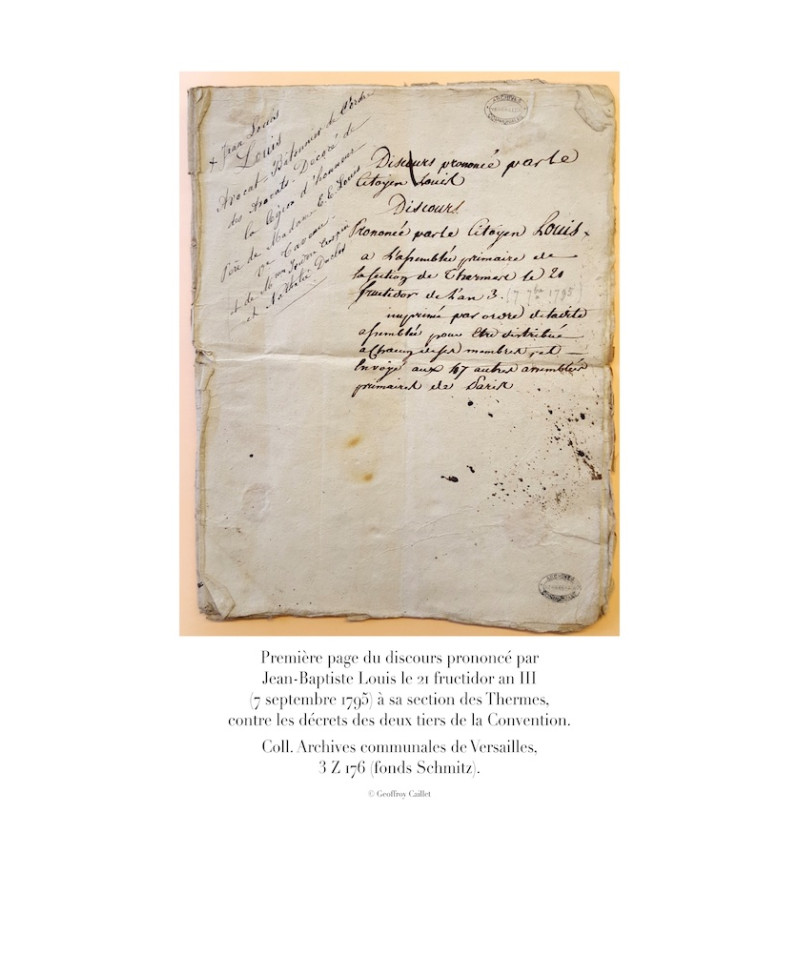 + Jean Louis
Louis
Avocat - Bâtonnier de l'ordre
des Avocats - Décoré de
la légion d'honneur
Père de Madame E. E. Louis
et de
et Nathalie Duclos
ARCHIVES
Discours prononcé par le
Citoyen Louis
Discours
Prononcé par le Citoyen Louis
a L'assemblée primaire de
la section de Thermes le 20
fructidor de l'an 3. (7 7bre 1795)
imprimé par ordre de ladite
assemblée pour être distribué
a chacun de ses membres, et
Envoyé aux 47 autres assemblées
primaires de Paris
ARCHIVES
Première page du discours prononcé par
Jean-Baptiste Louis le 21 fructidor an III
(7 septembre 1795) à sa section des Thermes,
contre les décrets des deux tiers de la Convention.
Coll. Archives communales de Versailles,
3 Z 176 (fonds Schmitz).
© Geoffroy Caillet